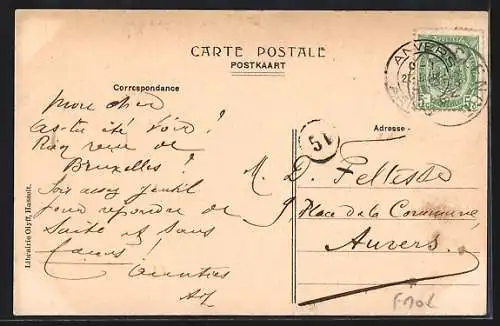 CARTE POSTALE
POSTKAART
Correspondance
Adresse
mon cher
as-tu été voir
revue de
Bruxelles ?
Sois assez gentil
pour répondre de
suite et sans
Amitiés
51
M. D. Feltesse
9, Place de la Commune,
Anvers.
ANVERS
Librairie Olyff, Hasselt.